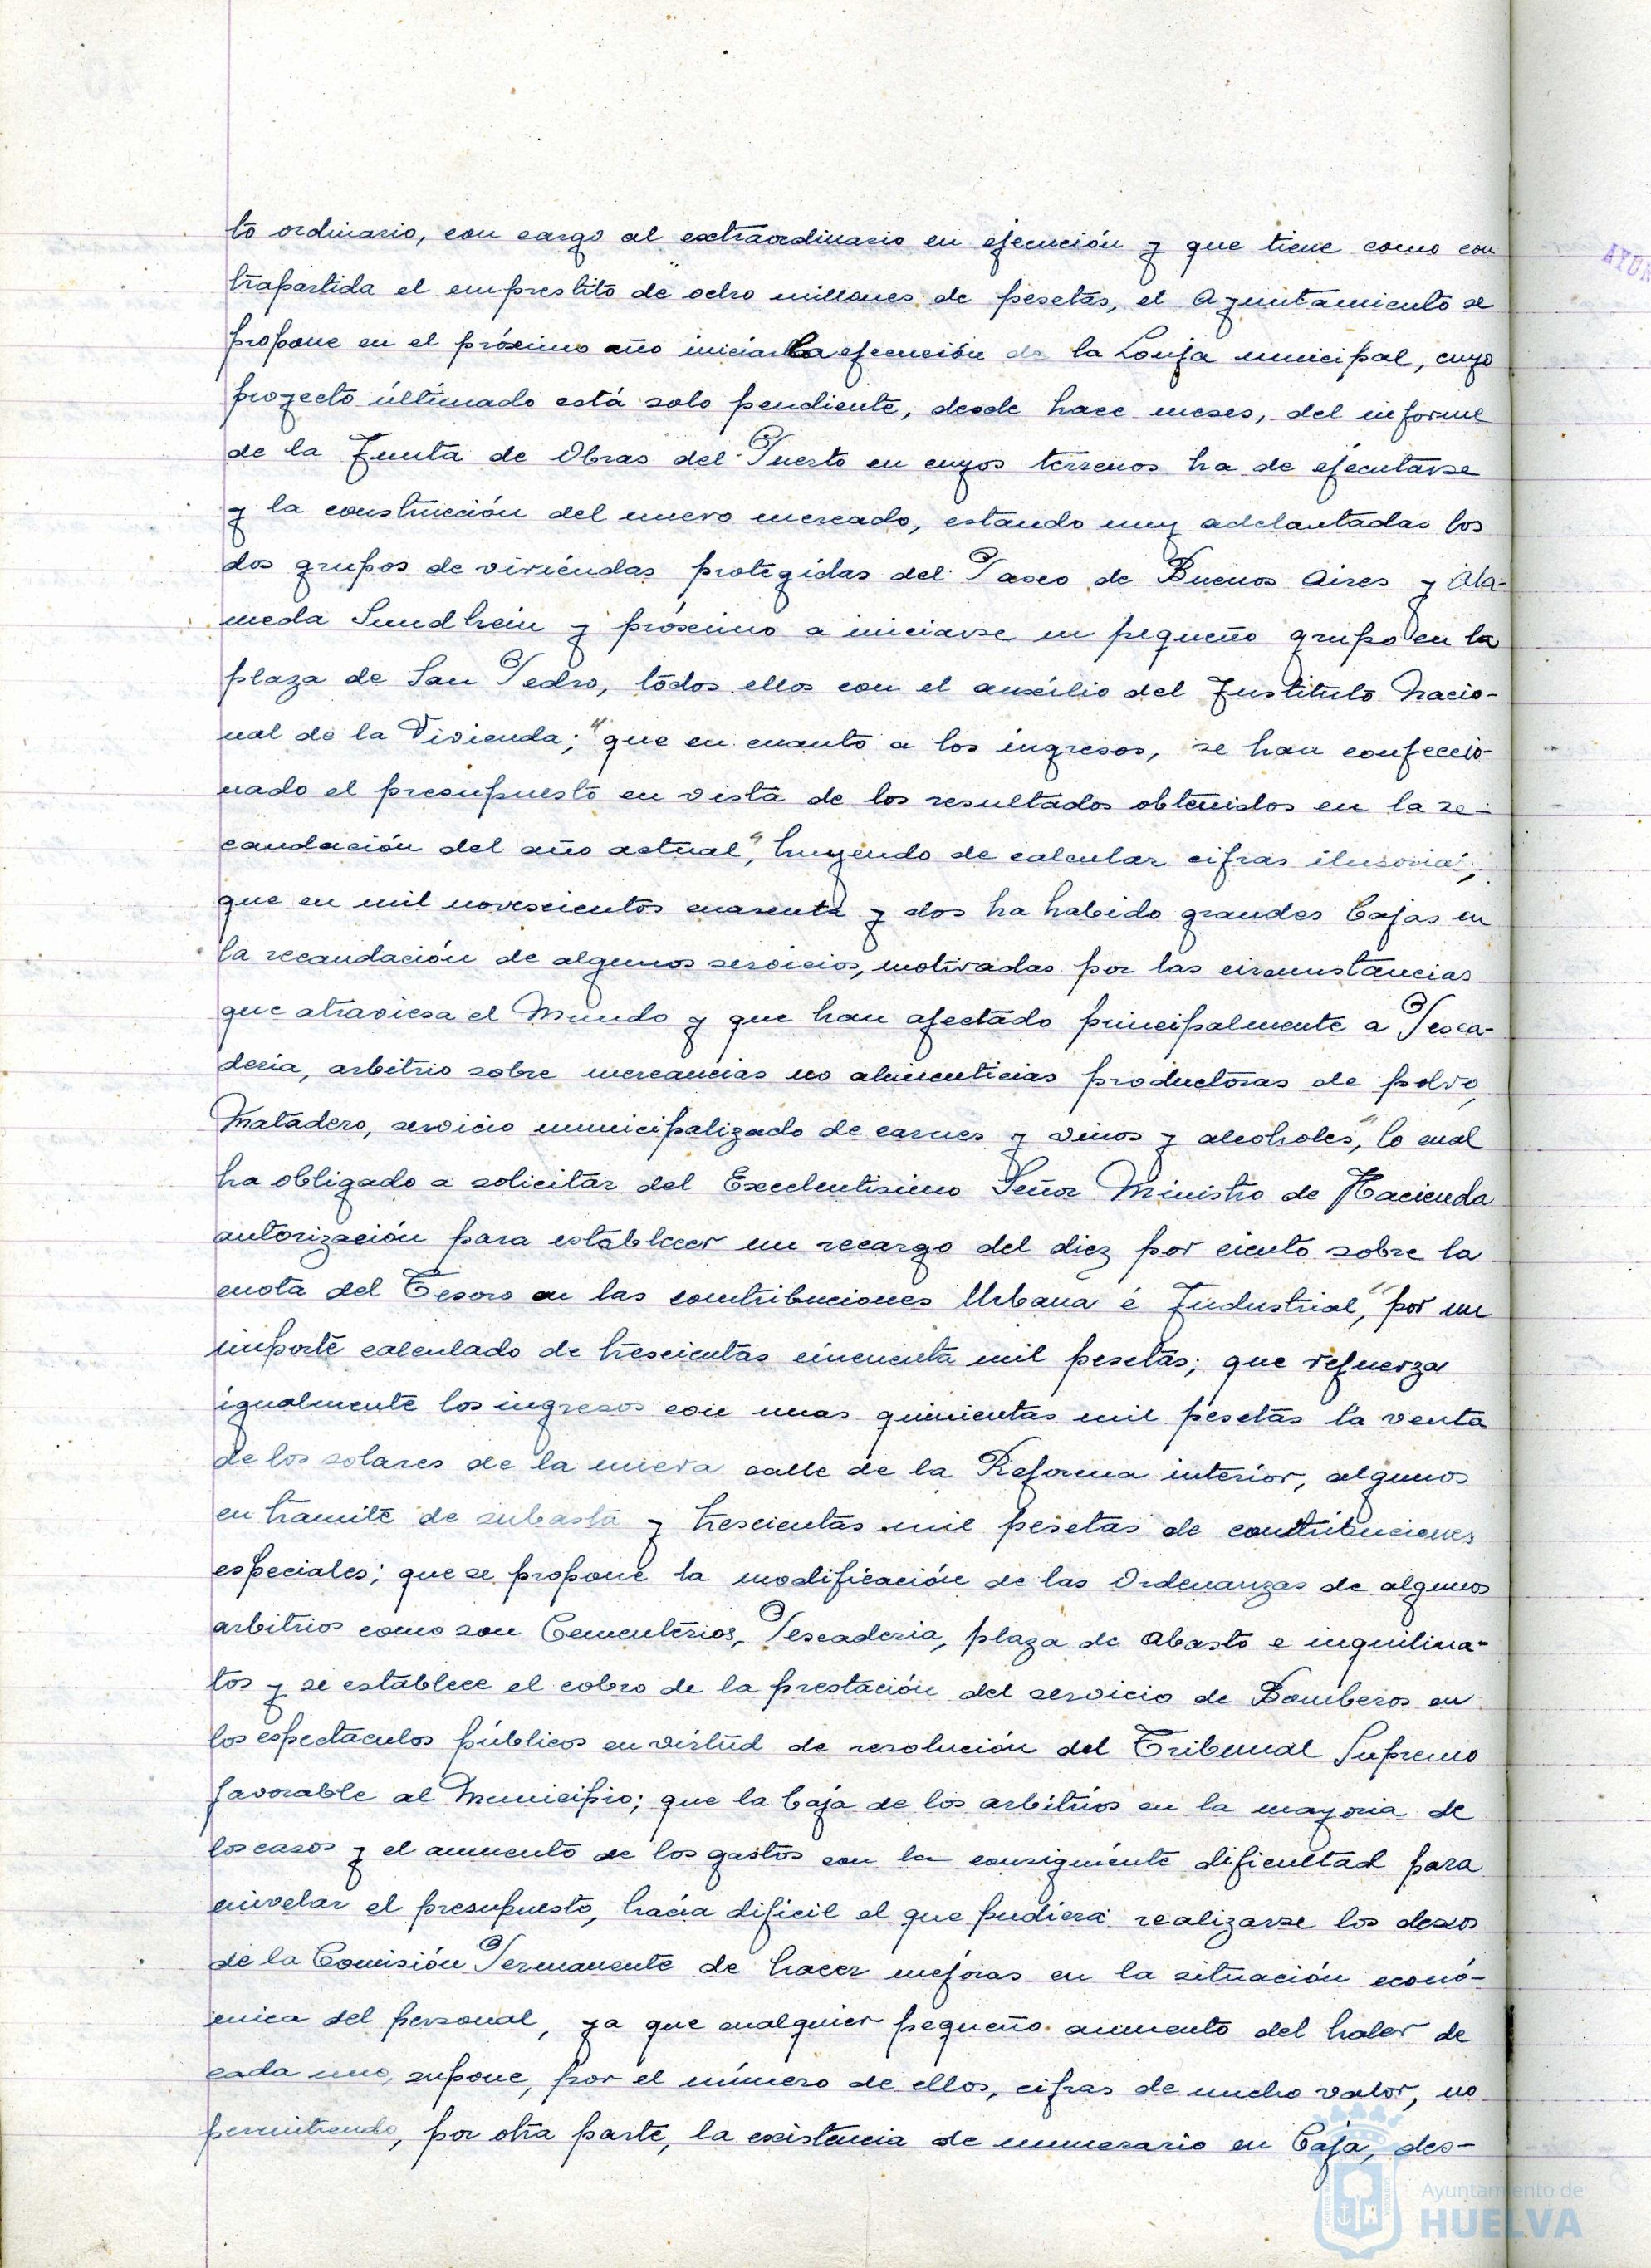 to ordinario, con cargo al extraordinario en ejecución y que tiene como con
trapartida el emprestito de ocho millones de pesetas, el Ayuntamiento se
propone en el próximo año iniciar la ejecución de la Lonja municipal, cuyo
proyecto últimado está solo pendiente, desde hace meses, del informe
de la Junta de Obras del Puerto en cuyos terrenos ha de ejecutarse
y la construcción del nuevo mercado, estando muy adelantadas los
dos grupos de viviendas protegidas del Paseo de Buenos Aires y Ala-
meda Sundhein y próximo a iniciarse un pequeño grupo en la
plaza de San Pedro, todos ellos con el auxilio del Instituto Nacio-
nal de la Vivienda; "que en cuanto a los ingresos, se han confeccio-
nado el presupuesto en vista de los resultados obtenidos en la re-
caudación del año actual", huyendo de calcular cifras ilusorias,
que en mil novescientos cuarenta y dos ha habido grandes bajas en
la recaudación de algunos servicios, motivadas por las circunstancias
que atraviesa el Mundo y que han afectado principalmente a Pesca-
deria, arbitrio sobre mercancias no alimenticias productoras de polvo,
Matadero, servicio municipalizado de carnes y vinos y alcoholes", lo cual
ha obligado a solicitar del Excelentisimo Señor Ministro de Hacienda
autorización para establecer un recargo del diez por ciento sobre la
cuota del Tesoro en las contribuciones Urbana é Industrial", por un
importe calculado de trescientas cincuenta mil pesetas; que refuerza
igualmente los ingresos con unas quinientas mil pesetas la venta
de los solares de la nueva calle de la Reforma interior, algunos
en tramite de subasta y trescientas mil pesetas de contribuciones
especiales; que se propone la modificación de las Ordenanzas de algunos
arbitrios como son Cementerios, Pescaderia, plaza de Abasto e inquilina-
tos y se establece el cobro de la prestación del servicio de Bomberos en
los espectáculos públicos en virtud de resolución del Tribunal Supremo
favorable al Municipio; que la baja de los arbitrios en la mayoria de
los casos y el aumento de los gastos con la consiguiente dificultad para
nivelar el presupuesto, hacia dificil el que pudiera realizarse los deseos
de la Comisión Permanente de hacer mejoras en la situación econó-
mica del personal, ya que cualquier pequeño aumento del haber de
cada uno, supone, por el número de ellos, cifras de mucho valor, no
permitiendo, por otra parte, la existencia de numerario en Caja, des-
AYUN
Ayuntamiento de
HUELVA